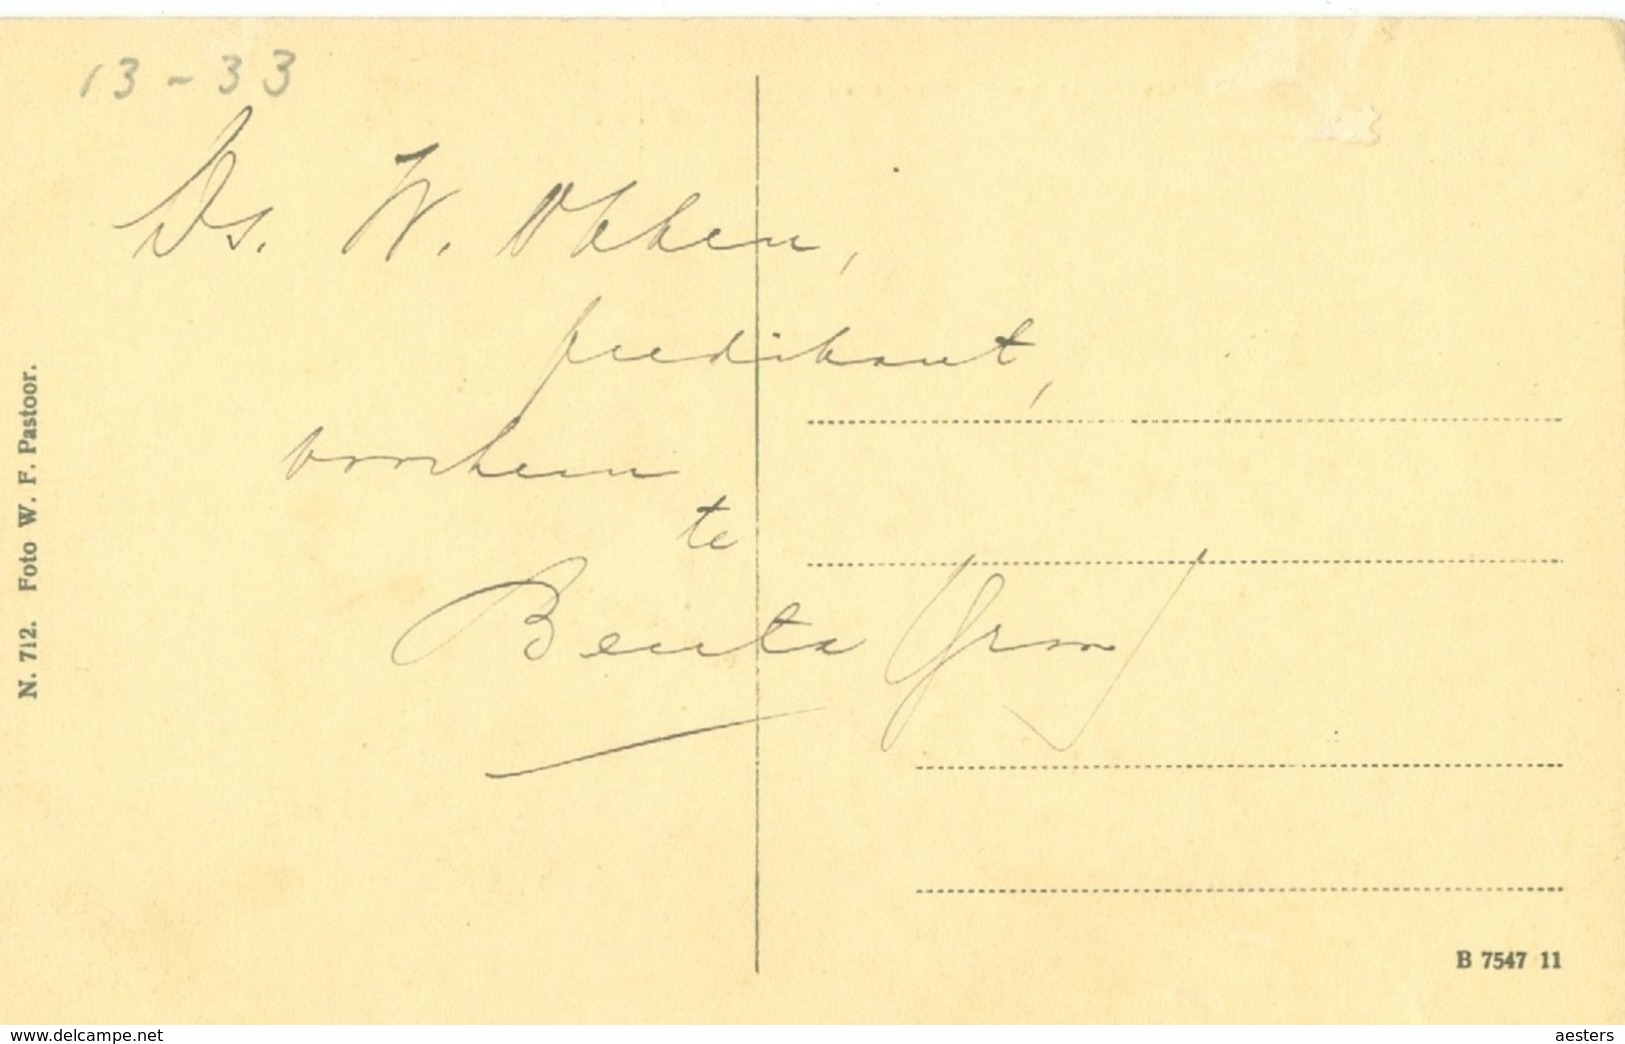 13 - 33
Ds. W. Okken,
predikant,
voorheen
te
Beerta (Gron)
N. 712. Foto W. F. Pastoor.
B 7547 11
www.delcampe.net
aesters